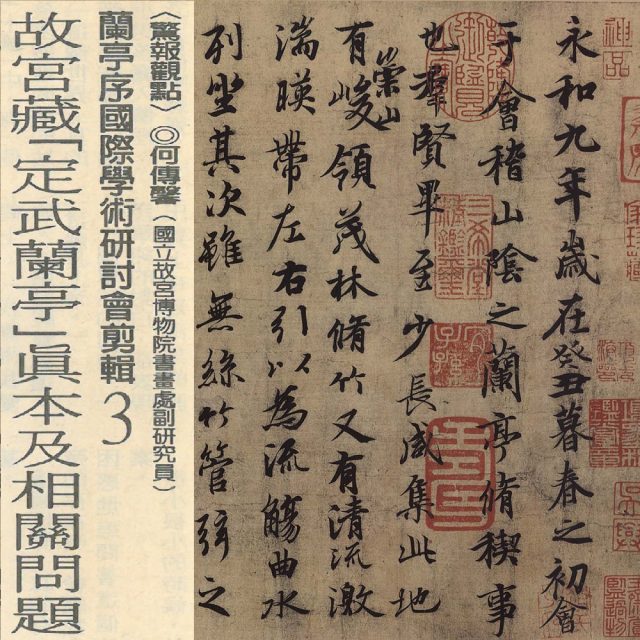 神品
永和九年歲在癸丑暮春之初會
于會稽山陰之蘭亭脩稧事
也羣賢畢至少長咸集此地
有崇山峻領茂林脩竹又有清流激
湍暎帶左右引以為流觴曲水
列坐其次雖無絲竹管弦之
〈驚報觀點〉◎何傳馨（國立故宮博物院書畫處副研究員）
蘭亭序國際學術研討會剪輯3
故宮藏「定武蘭亭」眞本及相關問題